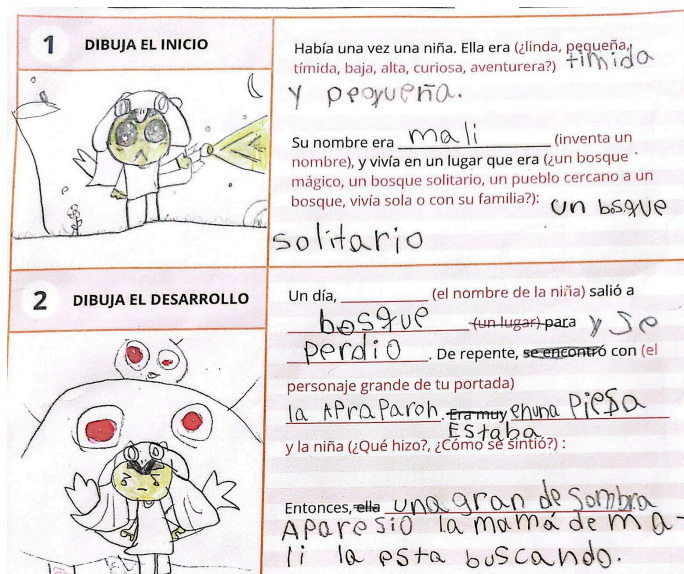 1 DIBUJA EL INICIO
Había una vez una niña. Ella era (¿linda, pequeña,
tímida, baja, alta, curiosa, aventurera?) tímida
y peqyeña.
Su nombre era mali (inventa un
nombre), y vivía en un lugar que era (¿un bosque
mágico, un bosque solitario, un pueblo cercano a un
bosque, vivía sola o con su familia?): un bosque
solitario
2 DIBUJA EL DESARROLLO
Un día, (el nombre de la niña) salió a
bosque (un lugar) para y se
perdio. De repente, se encontró con (el
personaje grande de tu portada)
la APraParon. Era muy enuna Piesa
Estaba
y la niña (¿Qué hizo?, ¿Cómo se sintió?) :
Entonces, ella una gran de Sombra
APareSio la mamá de ma-
li la esta buscando.